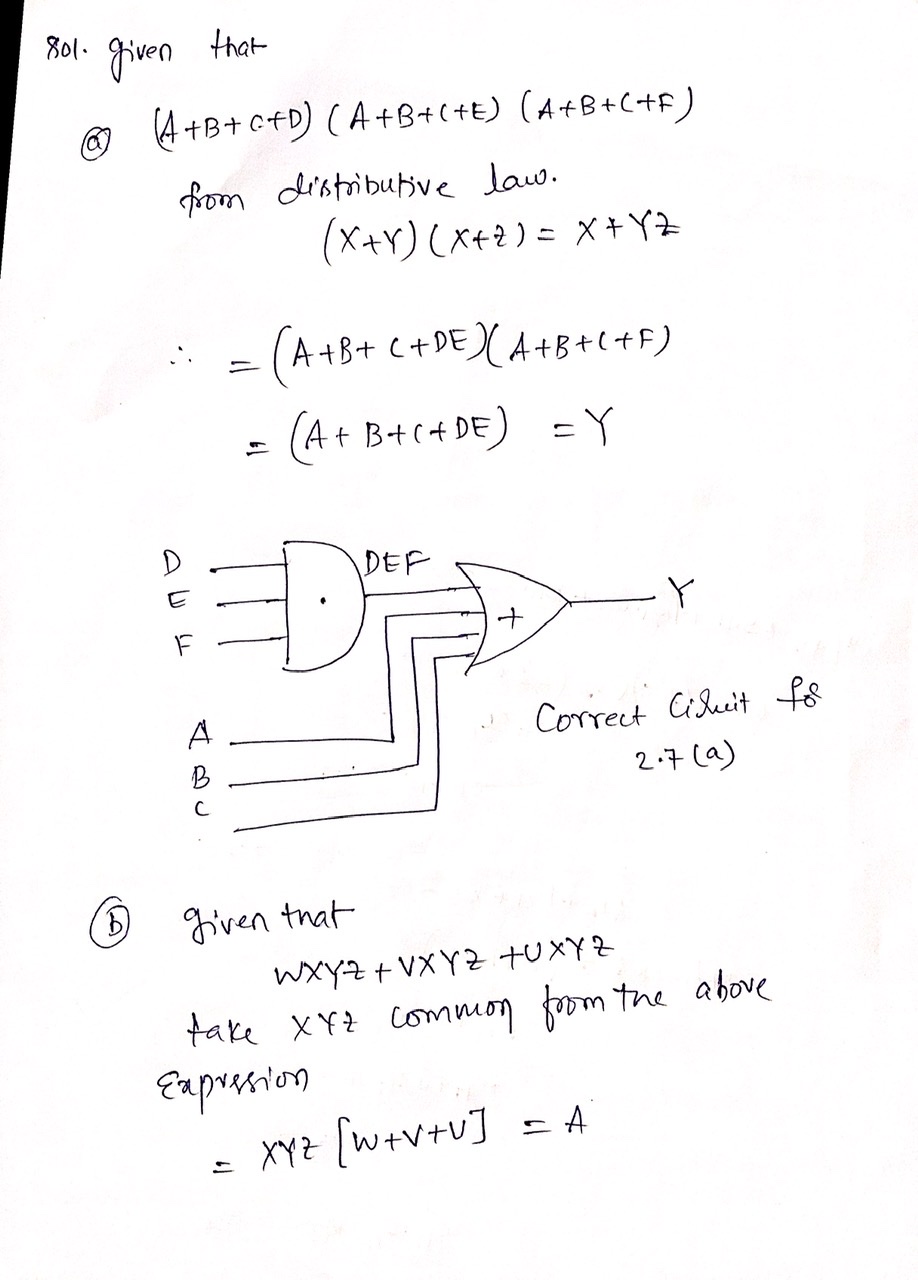 Sol. given that
(a) (A+B+C+D) (A+B+C+E) (A+B+C+F)
from distributive law.
(X+Y) (X+Z) = X+YZ
∴ = (A+B+C+DE)(A+B+C+F)
= (A+B+C+DE) = Y
D
DEF
E
·
Y
F
+
A
B
C
Correct Cikuit for
2.7 (a)
(b) given that
WXYZ + VXYZ + UXYZ
take XYZ common from the above
Expression
= XYZ [W+V+U] = A